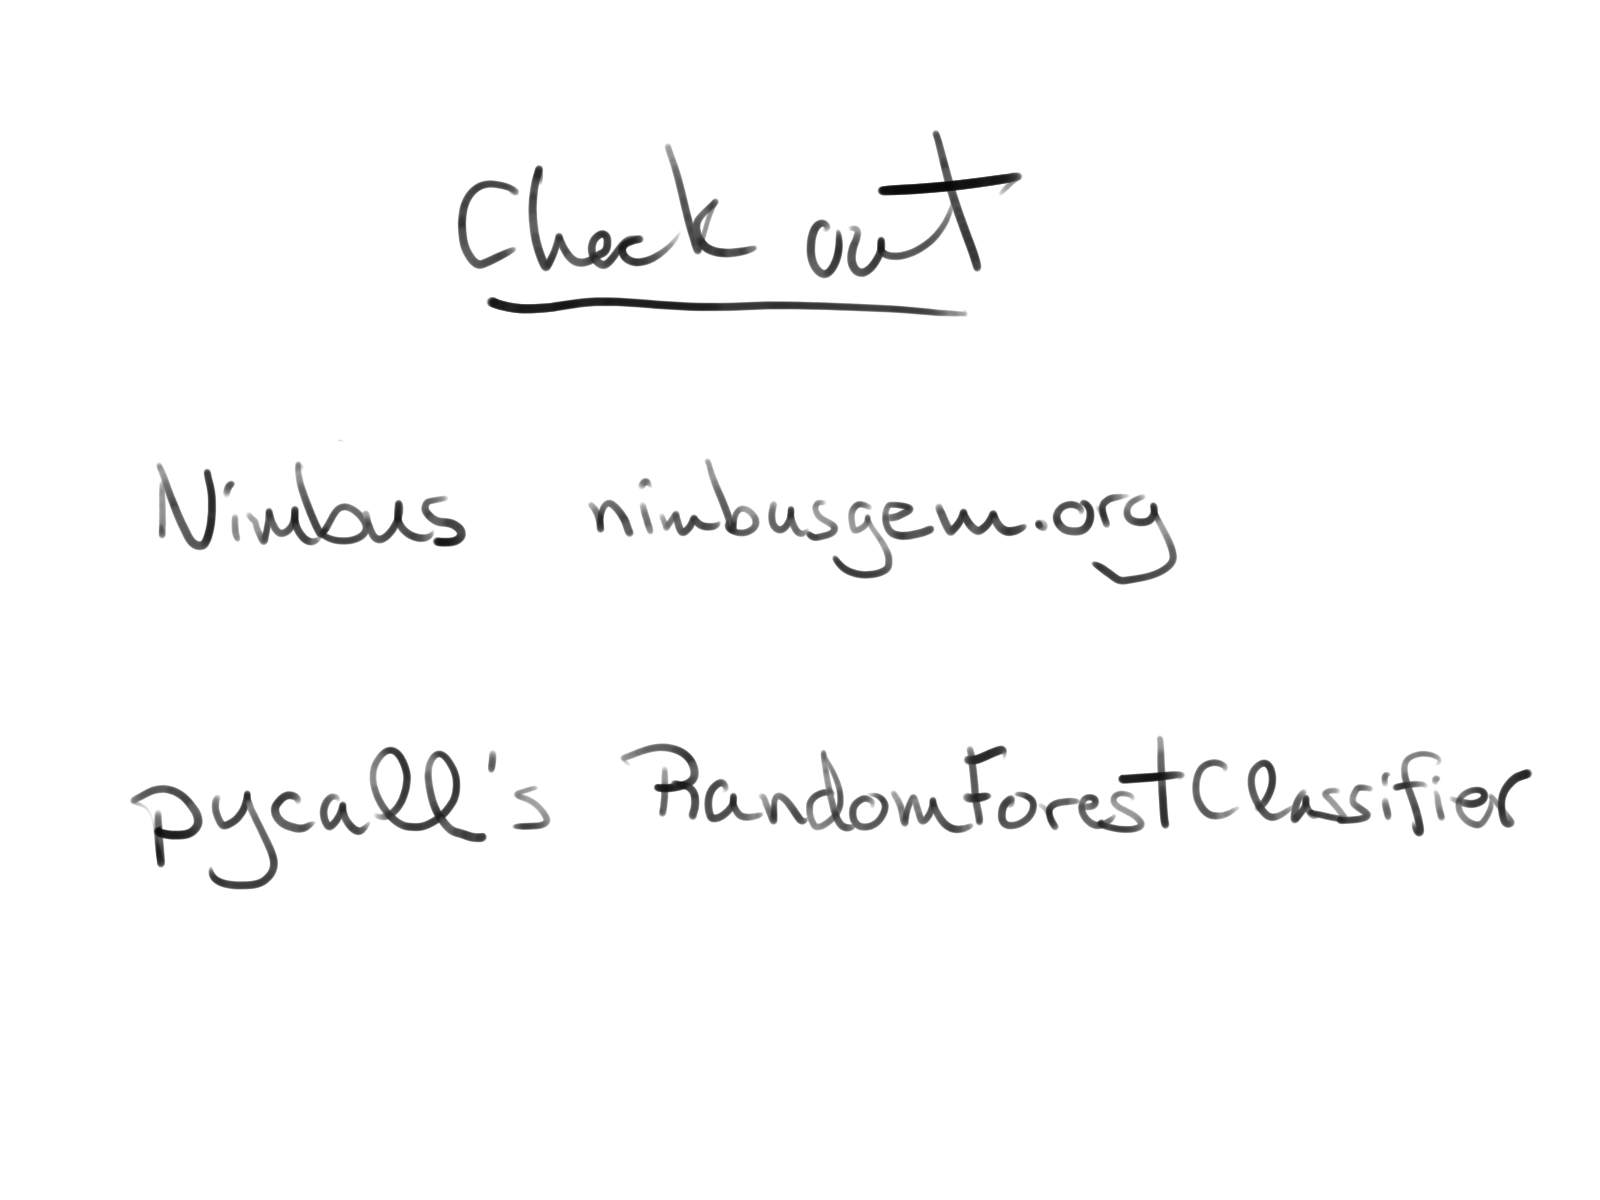 Check out
Nimbus nimbusgem.org
pycall's RandomForestClassifier